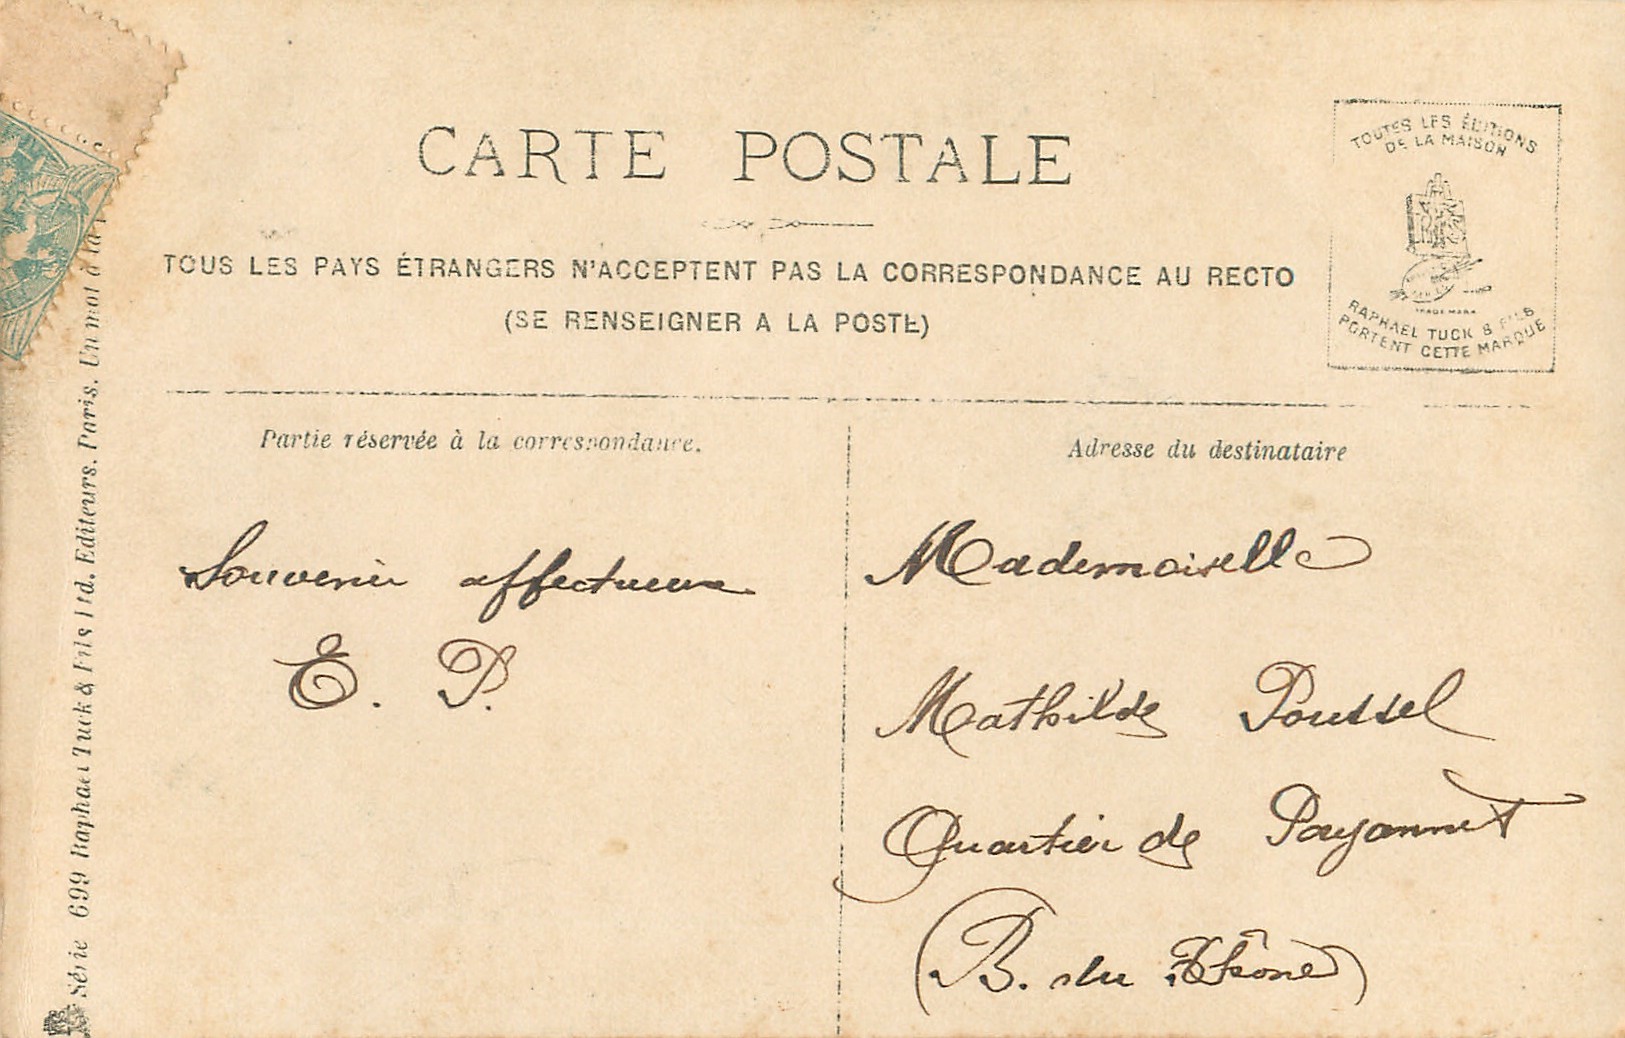 CARTE POSTALE
TOUS LES PAYS ÉTRANGERS N'ACCEPTENT PAS LA CORRESPONDANCE AU RECTO
(SE RENSEIGNER A LA POSTE)
TOUTES LES ÉDITIONS
DE LA MAISON
TRADE MARK
RAPHAEL TUCK & FILS
PORTENT CETTE MARQUE
Partie réservée à la correspondance.
Souvenir affectueux
E. P.
Adresse du destinataire
Mademoiselle
Mathilde Poussel
Quartier de Payannet
(B. du Rhône)
Série 699 Raphael Tuck & Fils Ltd. Editeurs. Paris. Un mot à la